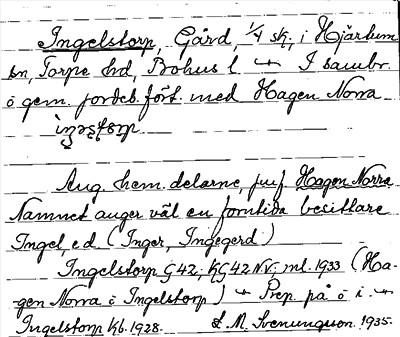 Ingelstorp, Gård, 1/4 sk; i Hjärtum
sn, Torpe hd, Bohus l. ⤺ I sambr.
o gem. jordeb.fört. med Hagen Norra

Ang. hem.delarne, jmf. Hagen Norra
Namnet anger väl en forntida besittare
Ingel, e.d. (Inger, Ingegerd)
Ingelstorp G42; KG42NV; ml. 1933 (Ha-
gen Norra o Ingelstorp) ⤺ Prep. på o i.
Ingelstorp Kb. 1928. S. M. Svenungsson. 1935.